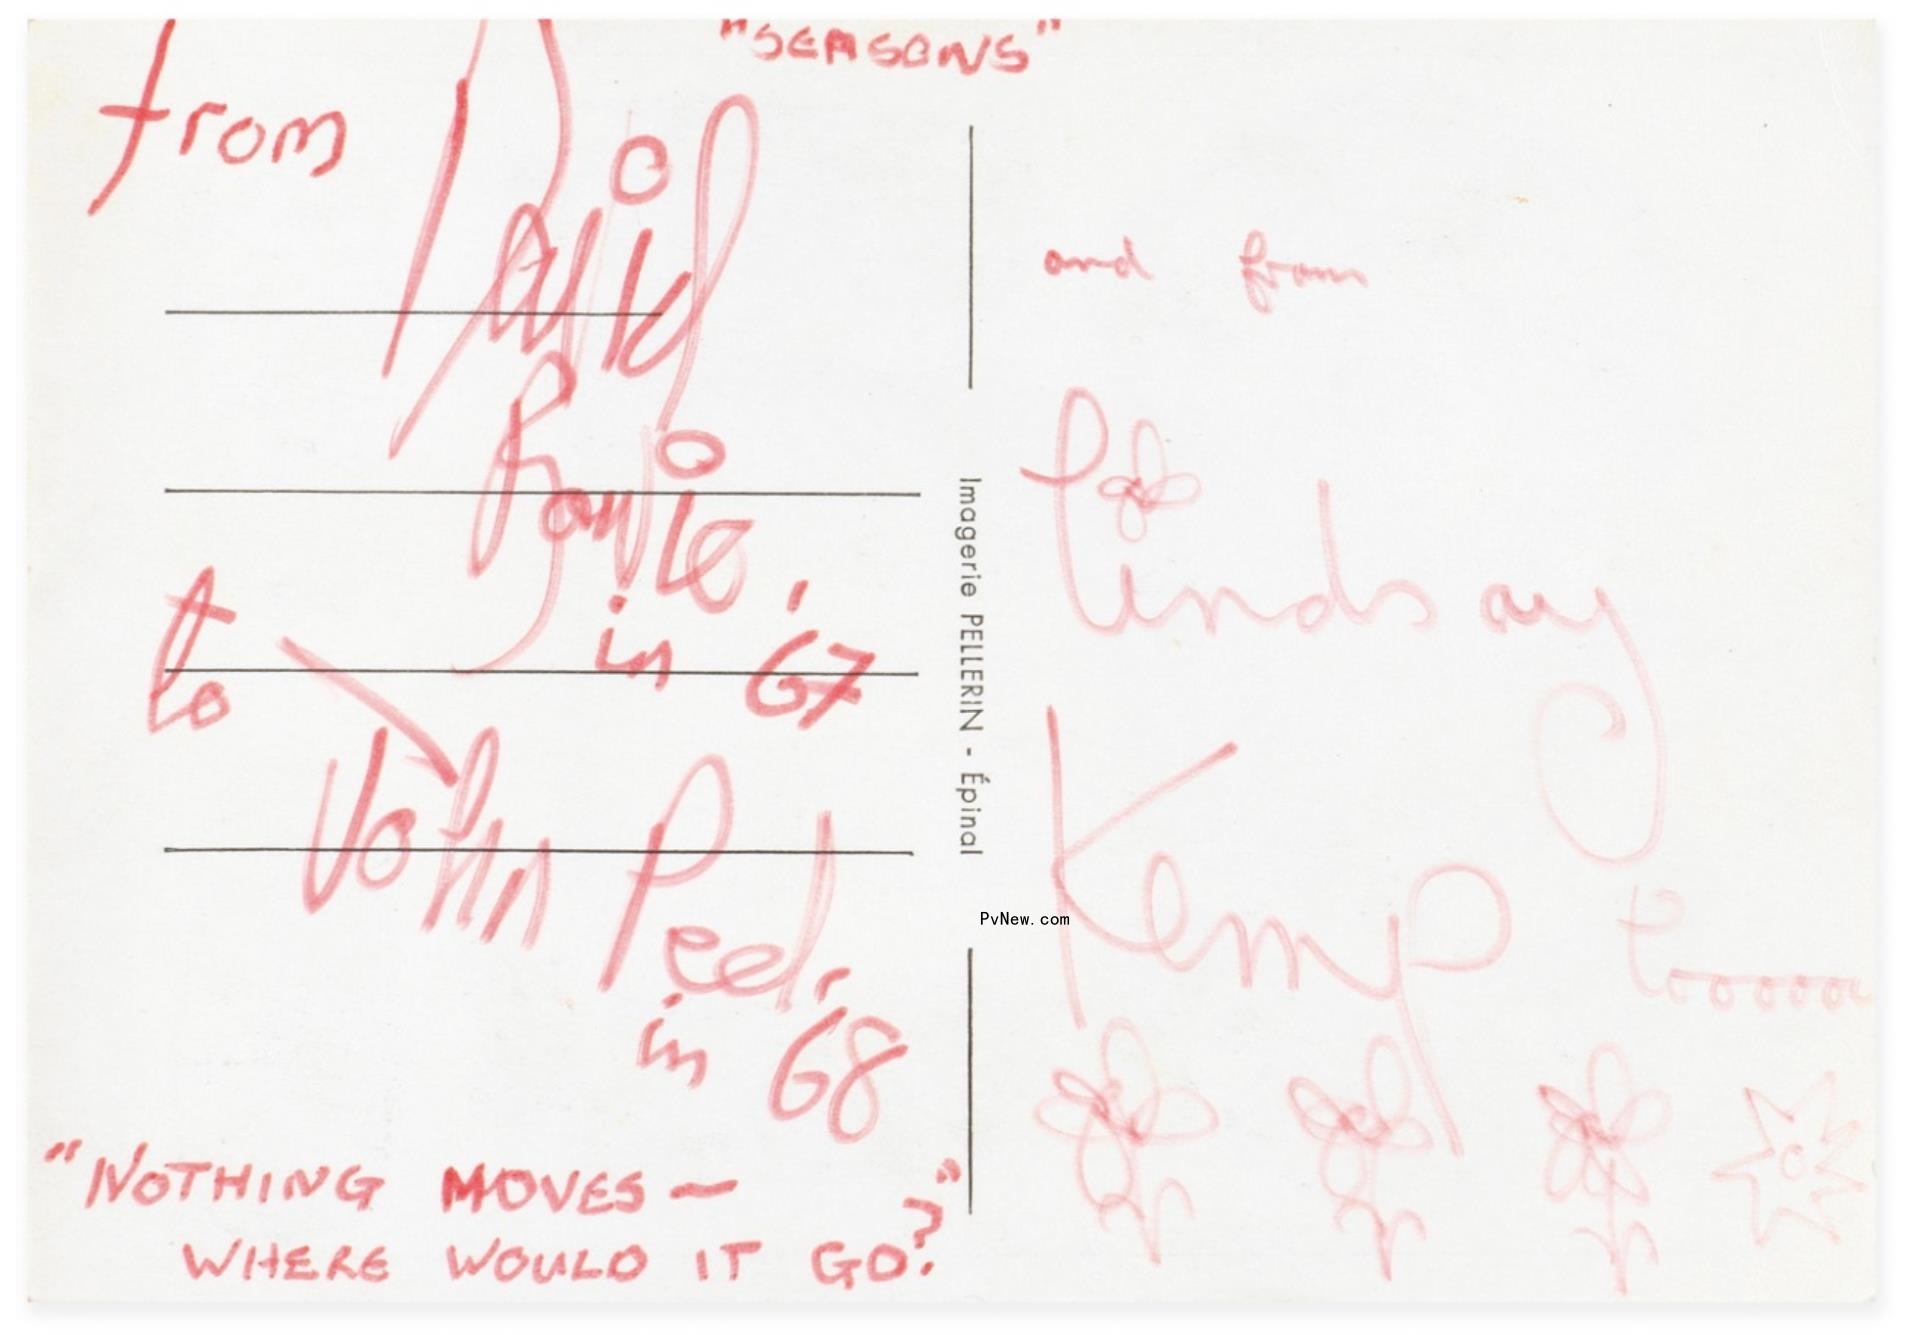 "SEASONS"
from David
Bowie
in '67
to John Peel
in '68
"NOTHING MOVES —
WHERE WOULD IT GO?"
Imagerie PELLERIN - Épinal
and from
Lindsay
Kemp tooooo
PvNew.com